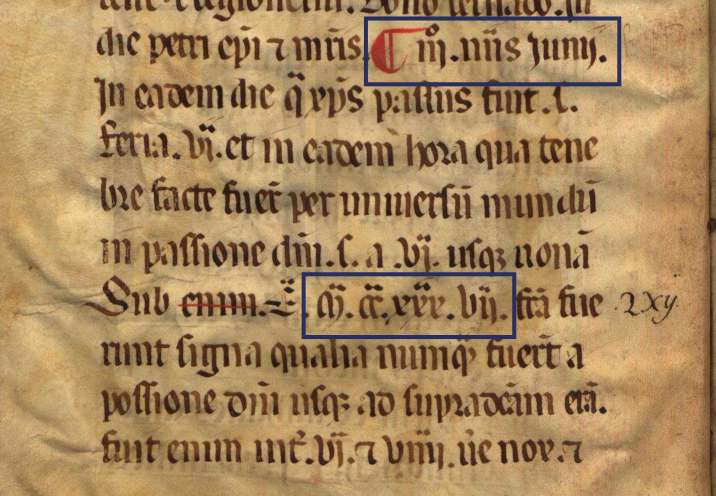 die petri epi ⁊ mr̄is. iiȷ̊. nūs Junij.
In eadem die q̄ xp̄s passus fuit .s.
feria. vj. et in eadem hora qua tene
bre facte fuer̄ per uniuersū mundū
in passione dn̄i .s. a .vj. usqꝫ nonā
Sub enim. m̄. cc̄. xxx. vij. fc̄ā fue 2xy
runt signa qualia numq̄ fuer̄t a
possione dn̄i usqꝫ ad supradcām erā.
fuit enim int̄. vj. ⁊ viiij. ūe nov. ⁊